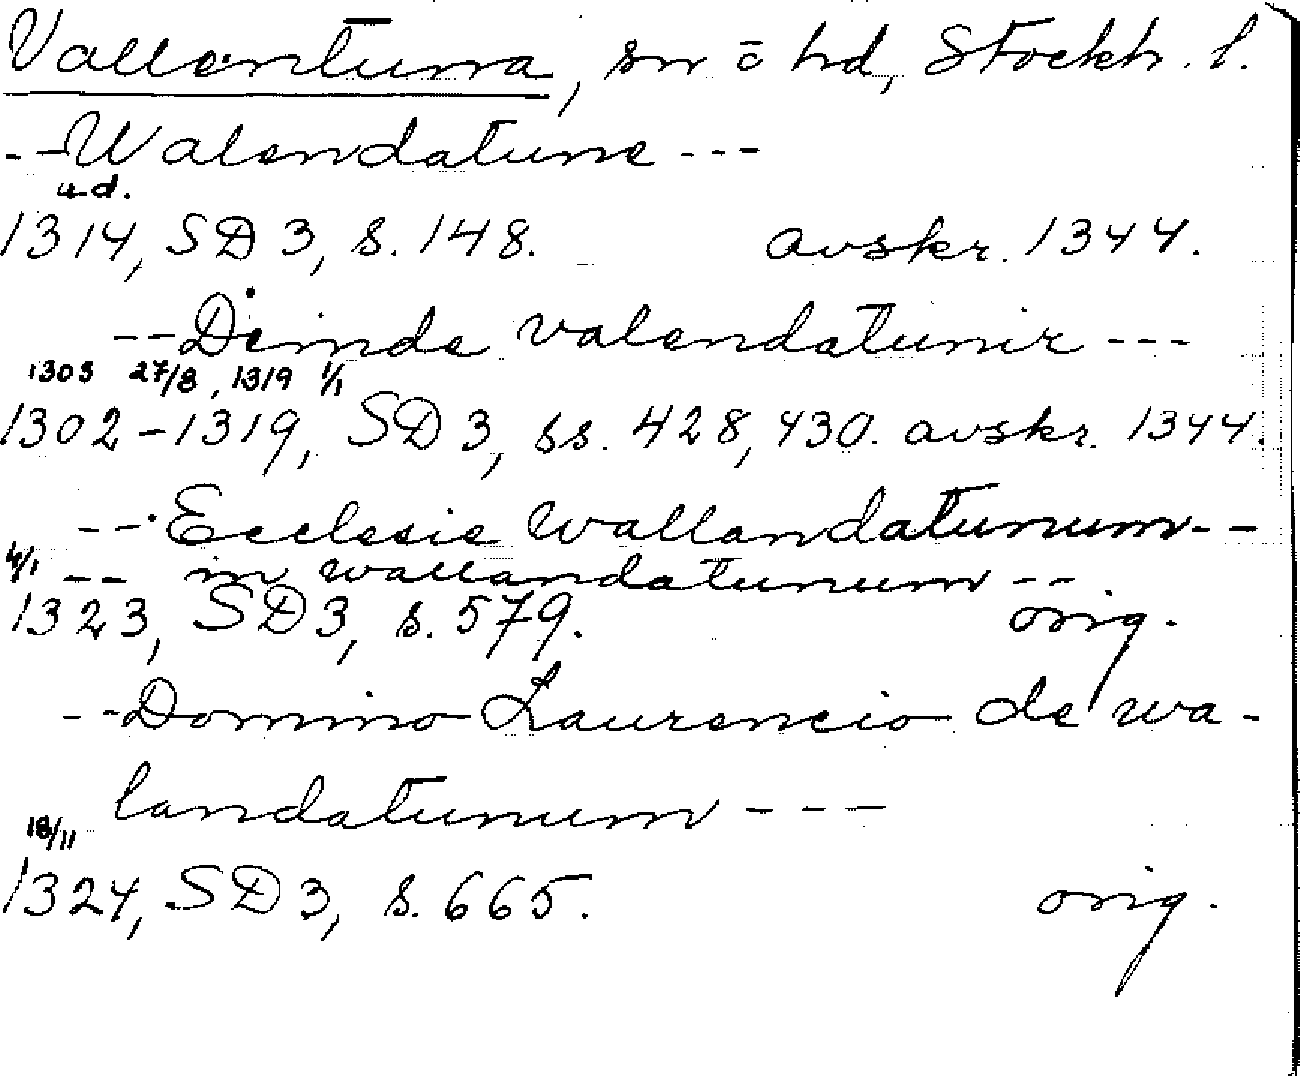 Vallentuna, sn o hd, Stockh. l.
--Walendatune---
u.d.
1314, SD 3, s. 148. avskr. 1344.
--Deinde valendatunir---
1303 27/8, 1319 1/1
1302-1319, SD 3, ss. 428, 430. avskr. 1344.
--Ecclesie Wallandatunum--
4/1 -- in wallandatunum--
1323, SD 3, s. 579. orig.
--Domino Laurencio de wa-
landatunum---
18/11
1324, SD 3, s. 665. orig.